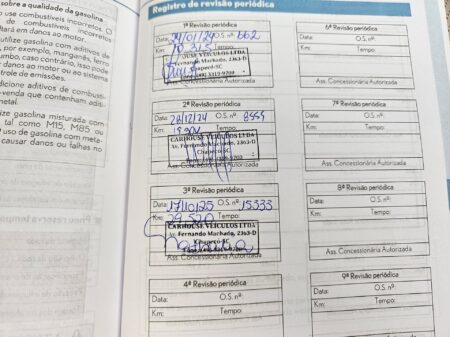 sobre a qualidade da gasolina
combustíveis incorretos. O
de combustíveis incorretos
ltará em danos ao motor.
utilize gasolina com aditivos de
por exemplo, manganês, ferro
caso contrário, isso pode
danos ao motor ou ao sistema
ntrole de emissões.
dicione aditivos de combus-
-venda que contenham aditi-
metal.
ize gasolina misturada com
tal como M15, M85 ou
O uso de gasolina com meta-
causar danos ou falhas no
Registro de revisão periódica
1ª Revisão periódica
Data: O.S. nº: 662
Km: 10.315
CARHOUSE VEICULOS LTDA
Av. Fernando Machado, 2363-D
Chapecó-SC
Ass. Concessionária Autorizada
2ª Revisão periódica
Data: O.S. nº:
Km: Tempo:
CARHOUSE VEICULOS LTDA
Av. Fernando Machado, 2363-D
Chapecó-SC
Ass. Concessionária Autorizada
3ª Revisão periódica
Data: 17/10/25 O.S. nº: 15333
Km: 29.520 Tempo:
CARHOUSE VEICULOS LTDA
Av. Fernando Machado, 2363-D
Chapecó-SC
Ass. Concessionária Autorizada
4ª Revisão periódica
Data: O.S. nº:
Km: Tempo:
6ª Revisão periódica
Data: O.S. nº:
Km: Tempo:
Ass. Concessionária Autorizada
7ª Revisão periódica
Data: O.S. nº:
Km: Tempo:
Ass. Concessionária Autorizada
8ª Revisão periódica
Data: O.S. nº:
Km: Tempo:
Ass. Concessionária Autorizada
9ª Revisão periódica
Data: O.S. nº:
Km: Tempo: